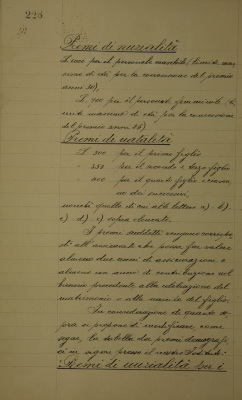 226
Premi di nuzialità
L. 1000 per il personale maschile (limite mas
simo di età per la concessione del premio
anni 30),
L. 700 per il personale femminile (li
mite massimo di età per la concessione
del premio anni 26)
Premi di natalità
L. 300 per il primo figlio
" 350 per il secondo e terzo figlio
" 400 per il quarto figlio e ciascu
no dei successivi,
nonchè quelle di cui alle lettere a) b)
c) d) e) sopra elencate.
I premi suddetti vengono corrisposti
all'assicurato che possa far valere
almeno due anni di assicurazione e
almeno un anno di contribuzione nel
biennio precedente alla celebrazione del
matrimonio o alla nascita del figlio.
In considerazione di quanto so
pra si propone di modificare, come
segue, la tabella dei premi demografi
ci in vigore presso il nostro Istituto:
Premi di nuzialità per i